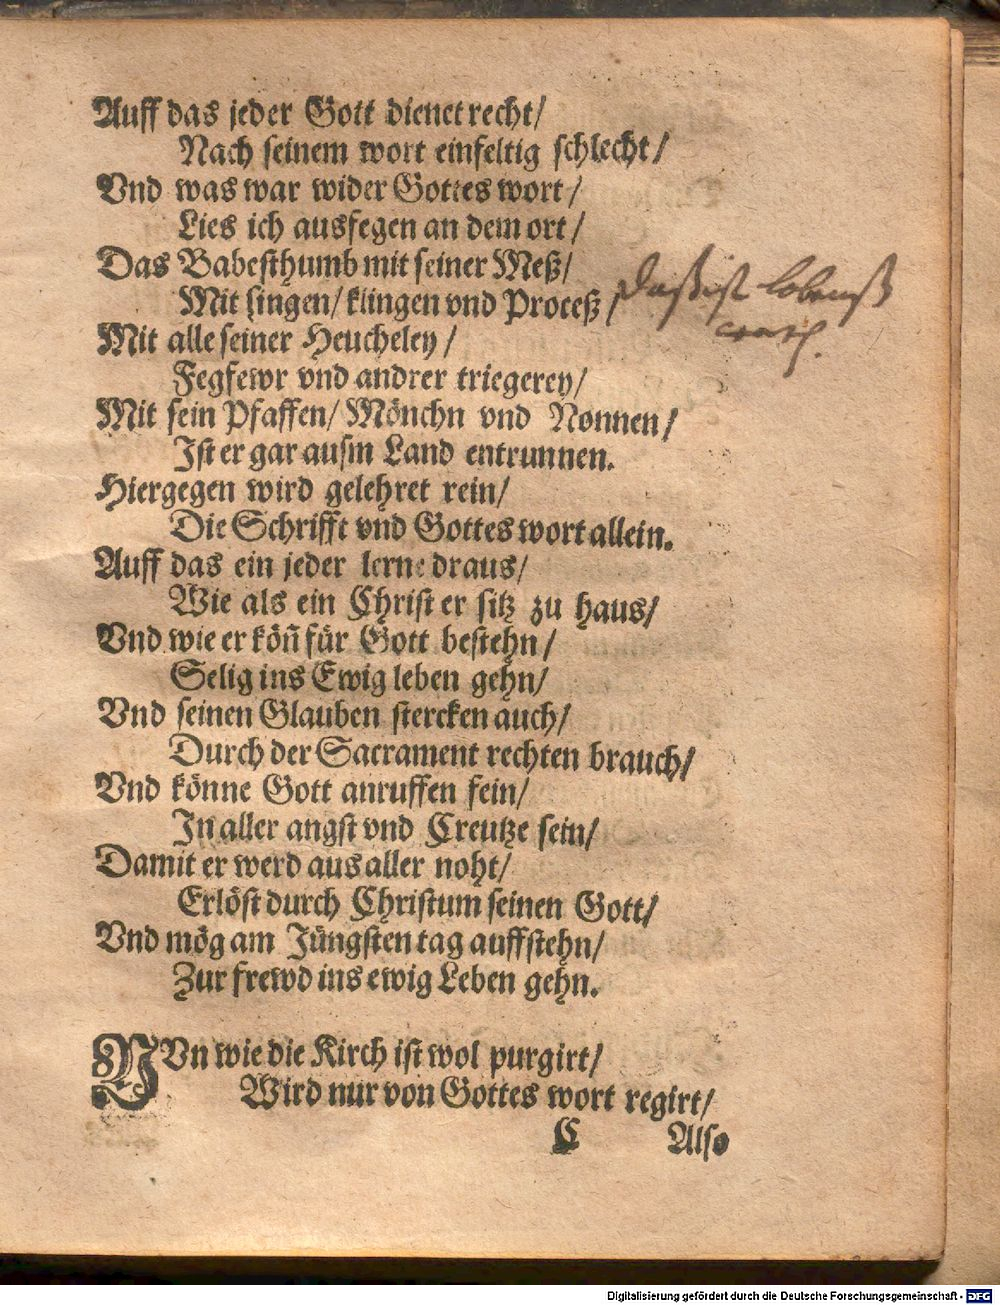 Auff das jeder Gott dienet recht/
Nach seinem wort einfeltig schlecht/
Vnd was war wider Gottes wort/
Lies ich ausfegen an dem ort/
Das Babesthumb mit seiner Meß/
Mit singen/ klingen vnd Proceß/
Daß ist lobenß
werth.
Mit alle seiner Heucheley/
Fegfewr vnd andrer triegerey/
Mit sein Pfaffen/ Mönchn vnd Nonnen/
Ist er gar ausm Land entrunnen.
Hiergegen wird gelehret rein/
Die Schrifft vnd Gottes wort allein.
Auff das ein jeder lerne draus/
Wie als ein Christ er sitz zu haus/
Vnd wie er köñ für Gott bestehn/
Selig ins Ewig leben gehn/
Vnd seinen Glauben stercken auch/
Durch der Sacrament rechten brauch/
Vnd könne Gott anruffen fein/
In aller angst vnd Creutze sein/
Damit er werd aus aller noht/
Erlöst durch Christum seinen Gott/
Vnd mög am Jüngsten tag auffstehn/
Zur frewd ins ewig Leben gehn.
NVn wie die Kirch ist wol purgirt/
Wird nur von Gottes wort regirt/
C Also
Digitalisierung gefördert durch die Deutsche Forschungsgemeinschaft - DFG